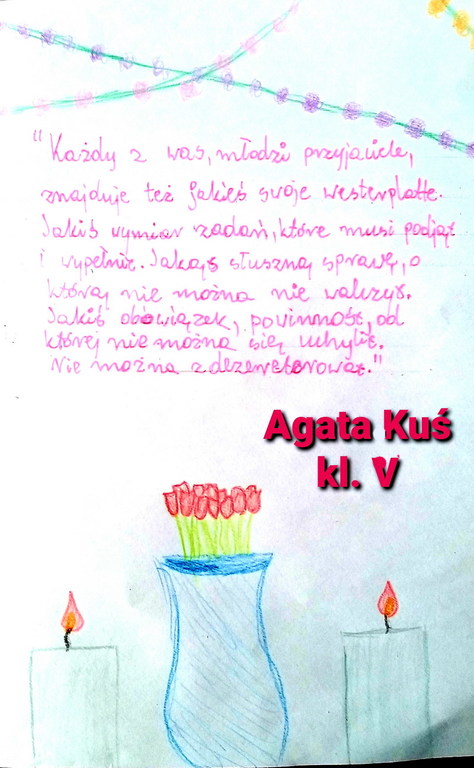 "Każdy z was, młodzi przyjaciele,
znajduje też jakieś swoje westerplatte.
Jakiś wymiar zadań, które musi podjąć
i wypełnić. Jakąś słuszną sprawę, o
którą nie można nie walczyć.
Jakiś obowiązek, povinność, od
której nie można się uchylić.
Nie można zdezenterować."
Agata Kuś
kl. V